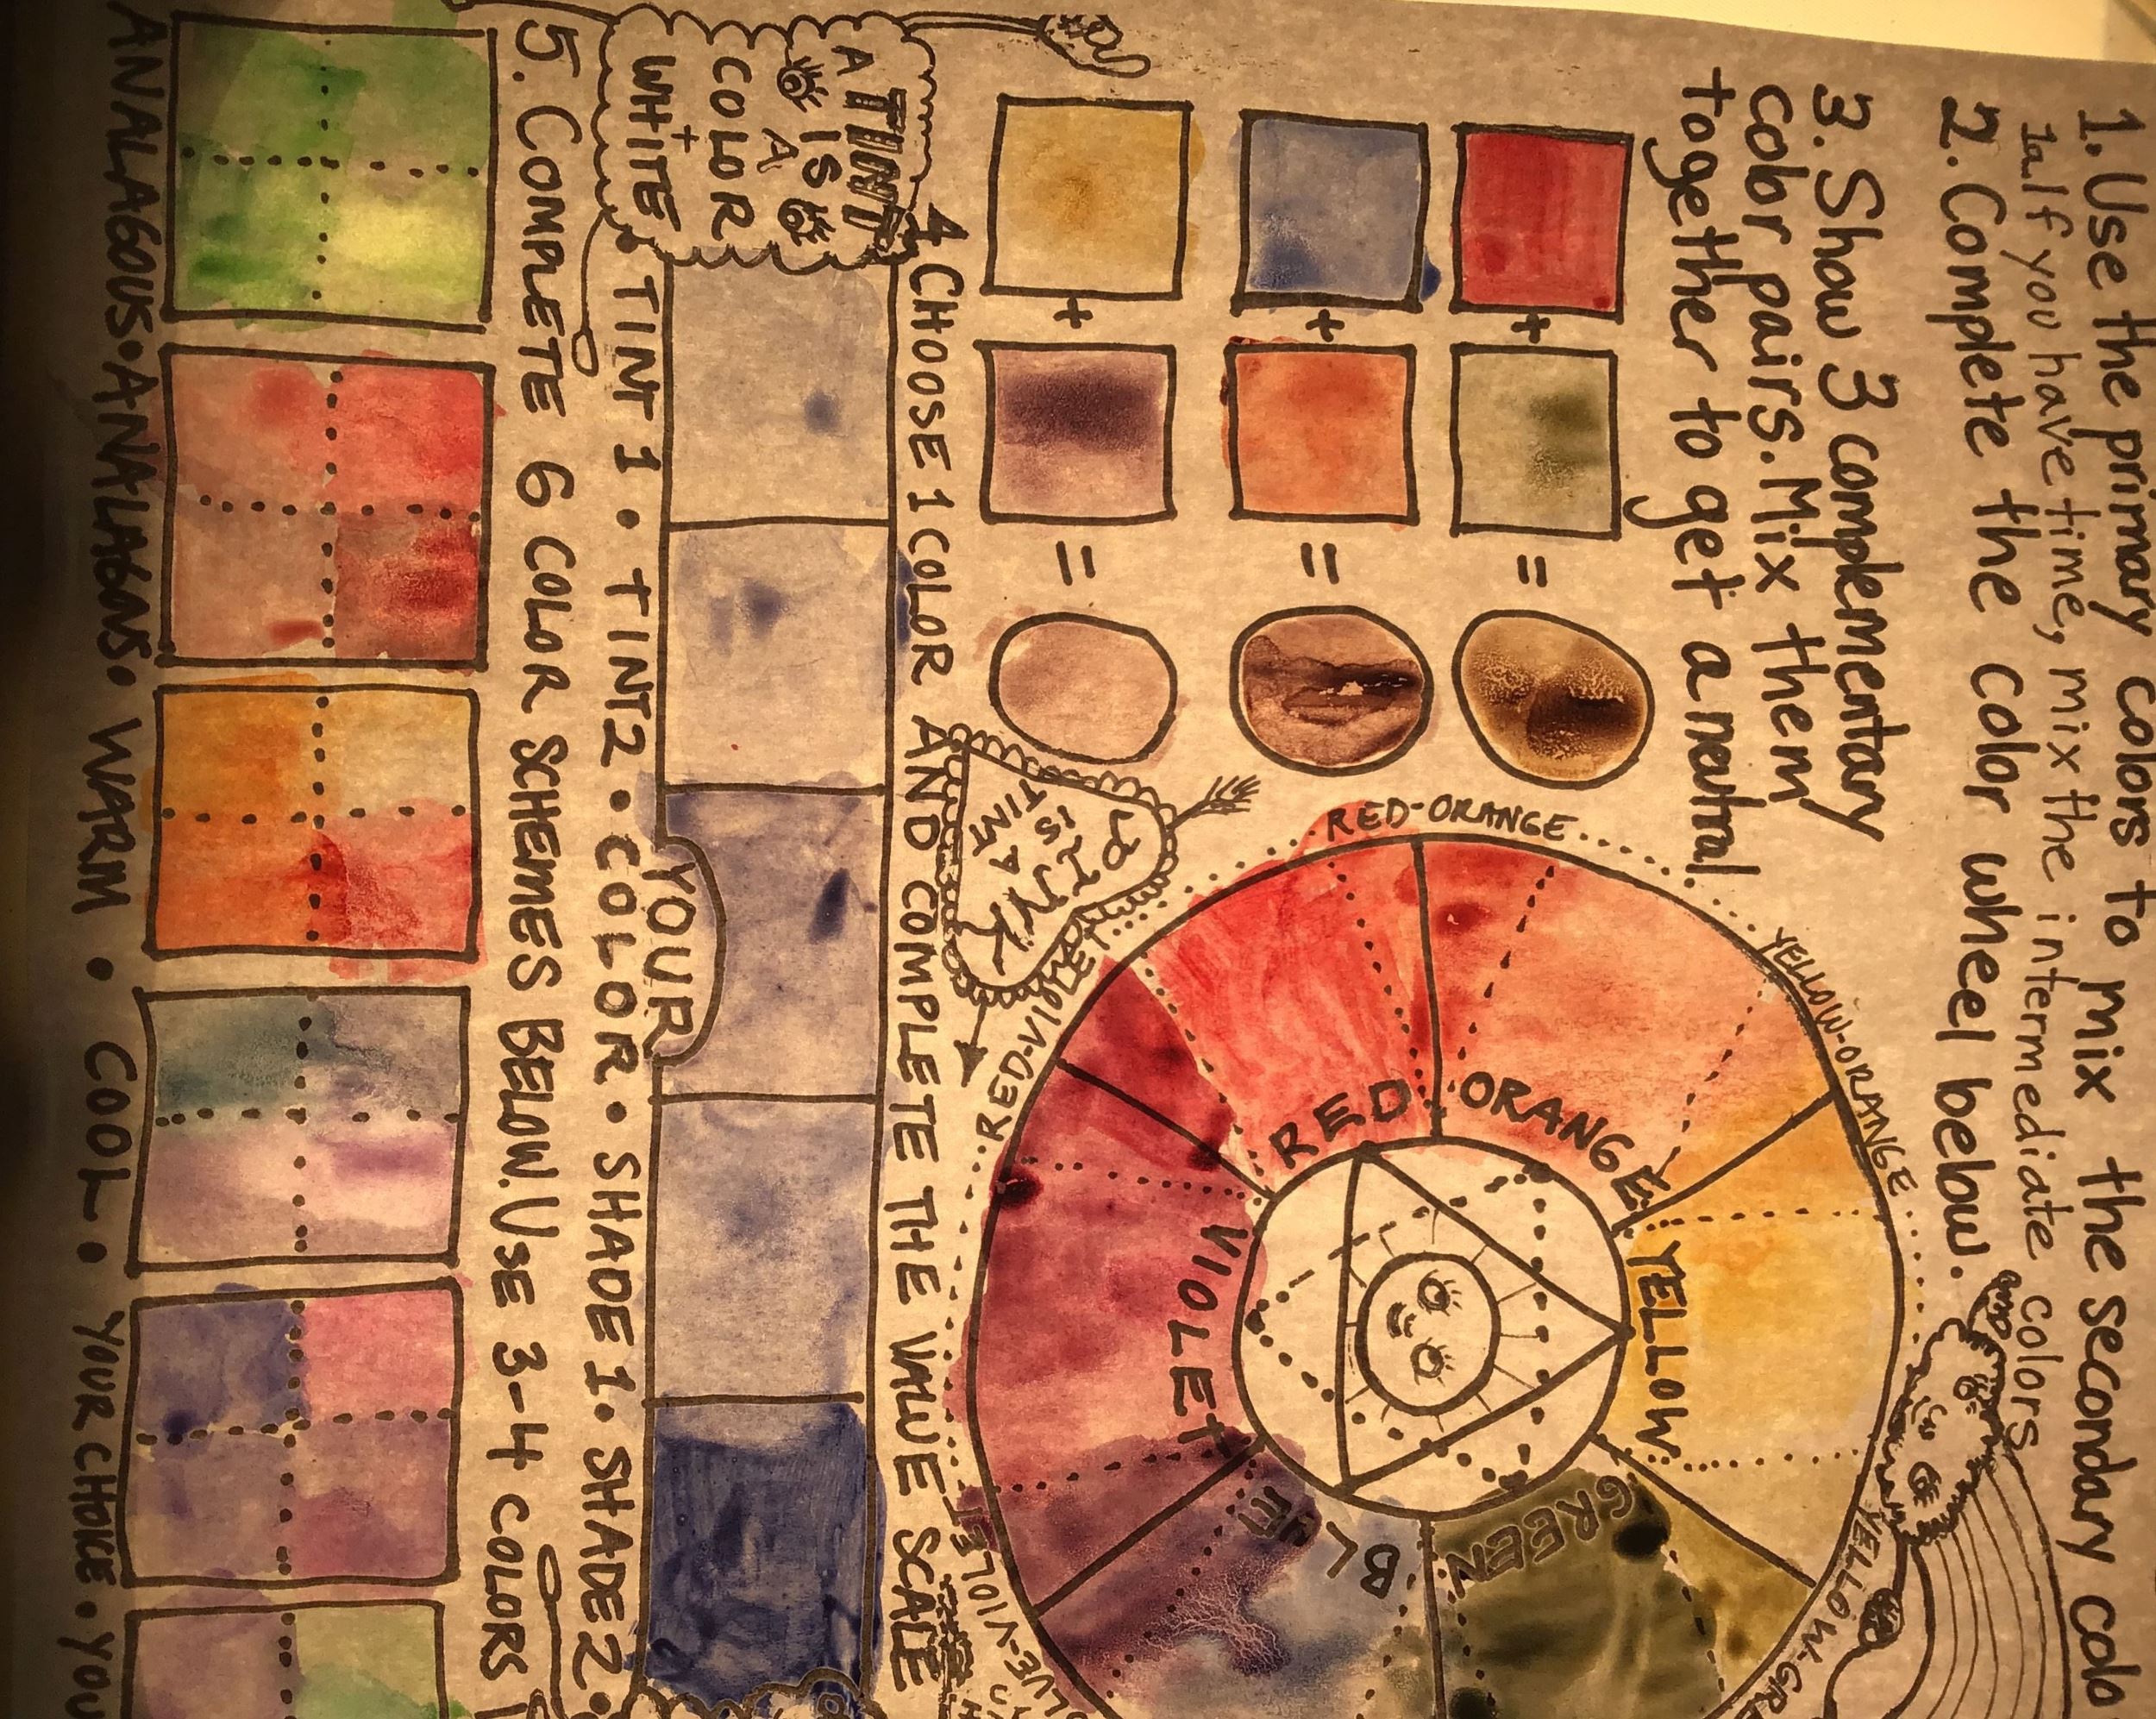 1. Use the primary colors to mix the secondary colo
1a. If you have time, mix the intermediate colors
2. Complete the color wheel below.
3. Show 3 complementary
color pairs. Mix them
together to get a neutral.
+ =
+ =
+ =
RED-ORANGE
YELLOW-ORANGE
YELLOW-GRE
RED-VIOLE
LUE-VIOLE
RED
ORANGE
YELLOW
GREEN
BL
UE
VIOLET
4 CHOOSE 1 COLOR AND COMPLETE THE VALUE SCALE
A TINT
IS
A
COLOR
+
WHITE
YOUR
• TINT 1 • TINT 2 • COLOR • SHADE 1 • SHADE 2 •
5. COMPLETE 6 COLOR SCHEMES BELOW. USE 3-4 COLORS
ANALAGOUS • ANALAGOUS • WARM • COOL • YOUR CHOICE • YOU